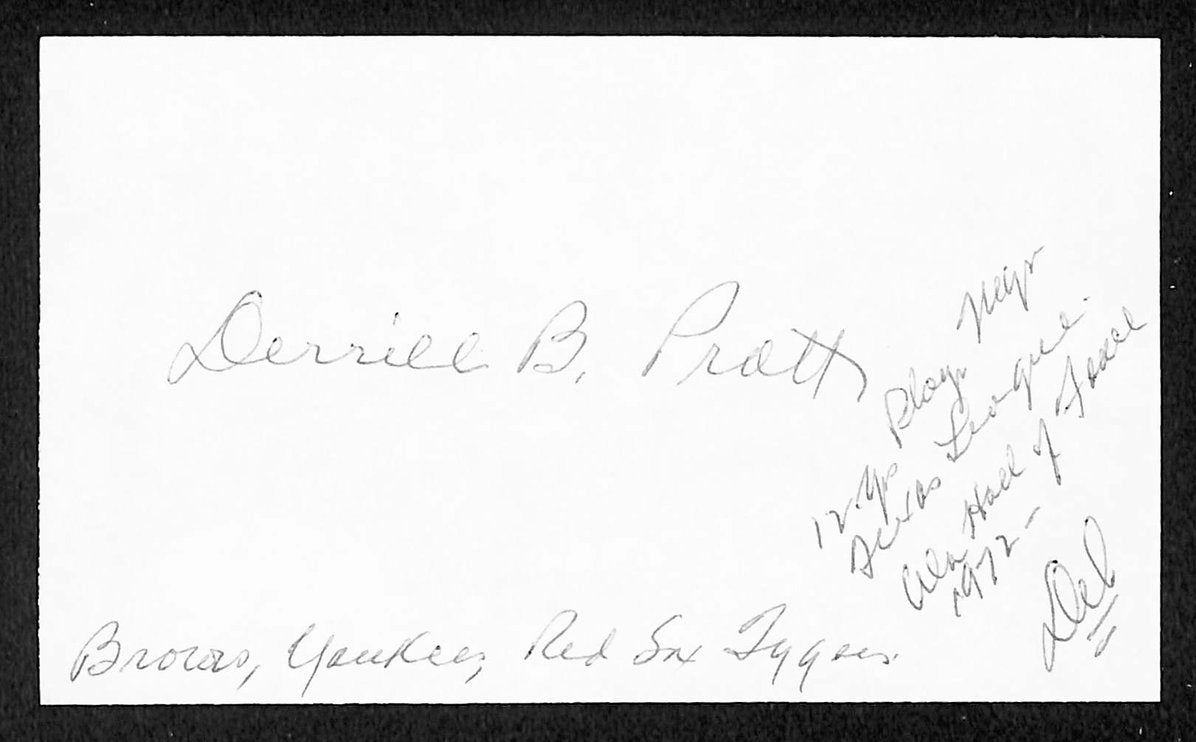 Derrill B. Pratt
12 Yrs Playr Mgr
Texas League.
Ala Hall of Fame
1972-
Del
Browns, Yankees, Red Sox Tygers.